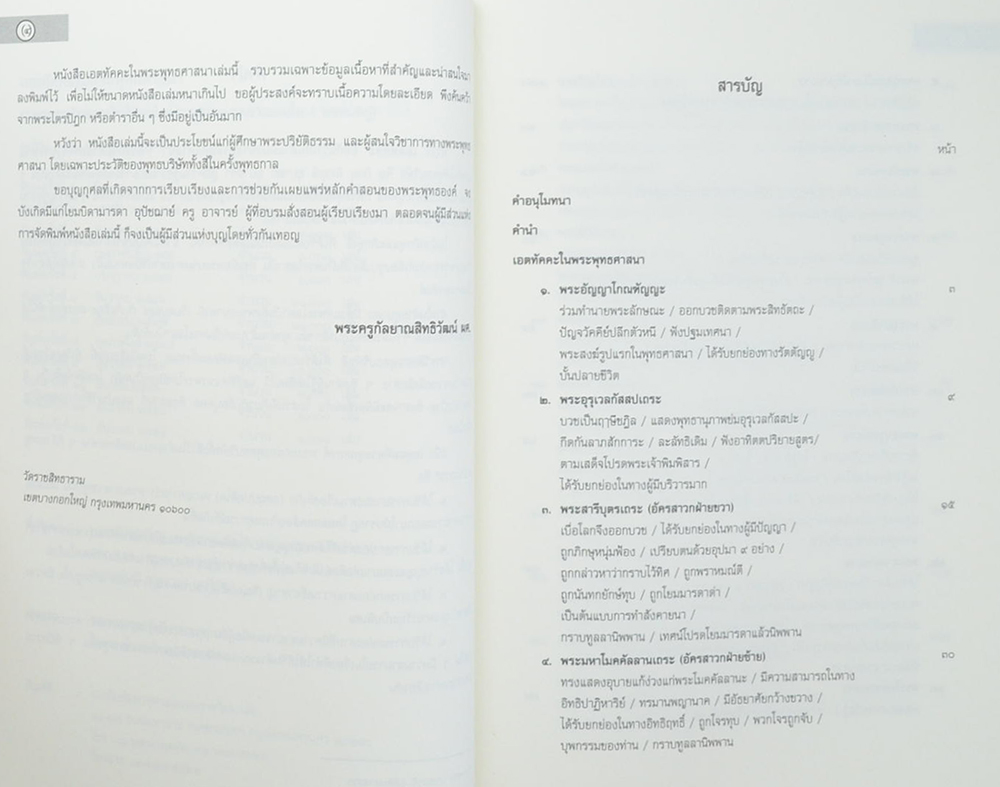 (๔)
หนังสือเอตทัคคะในพระพุทธศาสนาเล่มนี้ รวบรวมเฉพาะข้อมูลเนื้อหาที่สำคัญและน่าสนใจมา
ลงพิมพ์ไว้ เพื่อไม่ให้ขนาดหนังสือเล่มหนาเกินไป ขอผู้ประสงค์จะทราบเนื้อความโดยละเอียด พึงค้นคว้า
จากพระไตรปิฎก หรือตำราอื่น ๆ ซึ่งมีอยู่เป็นอันมาก
หวังว่า หนังสือเล่มนี้จะเป็นประโยชน์แก่ผู้ศึกษาพระปริยัติธรรม และผู้สนใจวิชาการทางพระพุทธ
ศาสนา โดยเฉพาะประวัติของพุทธบริษัททั้งสี่ในครั้งพุทธกาล
ขอบุญกุศลที่เกิดจากการเรียบเรียงและการช่วยกันเผยแพร่หลักคำสอนของพระพุทธองค์ จง
บังเกิดมีแก่โยมบิดามารดา อุปัชฌาย์ ครู อาจารย์ ผู้ที่อบรมสั่งสอนผู้เรียบเรียงมา ตลอดจนผู้มีส่วนแห่ง
การจัดพิมพ์หนังสือเล่มนี้ ก็จงเป็นผู้มีส่วนแห่งบุญโดยทั่วกันเทอญ
พระครูกัลยาณสิทธิวัฒน์ ผศ.
วัดราชสิทธาราม
เขตบางกอกใหญ่ กรุงเทพมหานคร ๑๐๖๐๐
สารบัญ
หน้า
คำอนุโมทนา
คำนำ
เอตทัคคะในพระพุทธศาสนา
๑. พระอัญญาโกณฑัญญะ ๓
ร่วมทำนายพระลักษณะ / ออกบวชติดตามพระสิทธัตถะ /
ปัญจวัคคีย์ปลีกตัวหนี / ฟังปฐมเทศนา /
พระสงฆ์รูปแรกในพุทธศาสนา / ได้รับยกย่องทางรัตตัญญู /
บั้นปลายชีวิต
๒. พระอุรุเวลกัสสปเถระ ๙
บวชเป็นฤๅษีชฎิล / แสดงพุทธานุภาพข่มอุรุเวลกัสสปะ /
กีดกันลาภสักการะ / ละลัทธิเดิม / ฟังอาทิตตปริยายสูตร/
ตามเสด็จโปรดพระเจ้าพิมพิสาร /
ได้รับยกย่องในทางผู้มีบริวารมาก
๓. พระสารีบุตรเถระ (อัครสาวกฝ่ายขวา) ๑๕
เบื่อโลกจึงออกบวช / ได้รับยกย่องในทางผู้มีปัญญา /
ถูกภิกษุหนุ่มฟ้อง / เปรียบตนด้วยอุปมา ๙ อย่าง /
ถูกกล่าวหาว่ากราบไว้ทิศ / ถูกพราหมณ์ตี /
ถูกนันทกยักษ์ทุบ / ถูกโยมมารดาด่า /
เป็นต้นแบบการทำสังคายนา /
กราบทูลลานิพพาน / เทศน์โปรดโยมมารดาแล้วนิพพาน
๔. พระมหาโมคคัลลานเถระ (อัครสาวกฝ่ายซ้าย) ๓๐
ทรงแสดงอุบายแก้ง่วงแก่พระโมคคัลลานะ / มีความสามารถในทาง
อิทธิปาฏิหาริย์ / ทรมานพญานาค / มีอัธยาศัยกว้างขวาง /
ได้รับยกย่องในทางอิทธิฤทธิ์ / ถูกโจรทุบ / พวกโจรถูกจับ /
บุพกรรมของท่าน / กราบทูลลานิพพาน